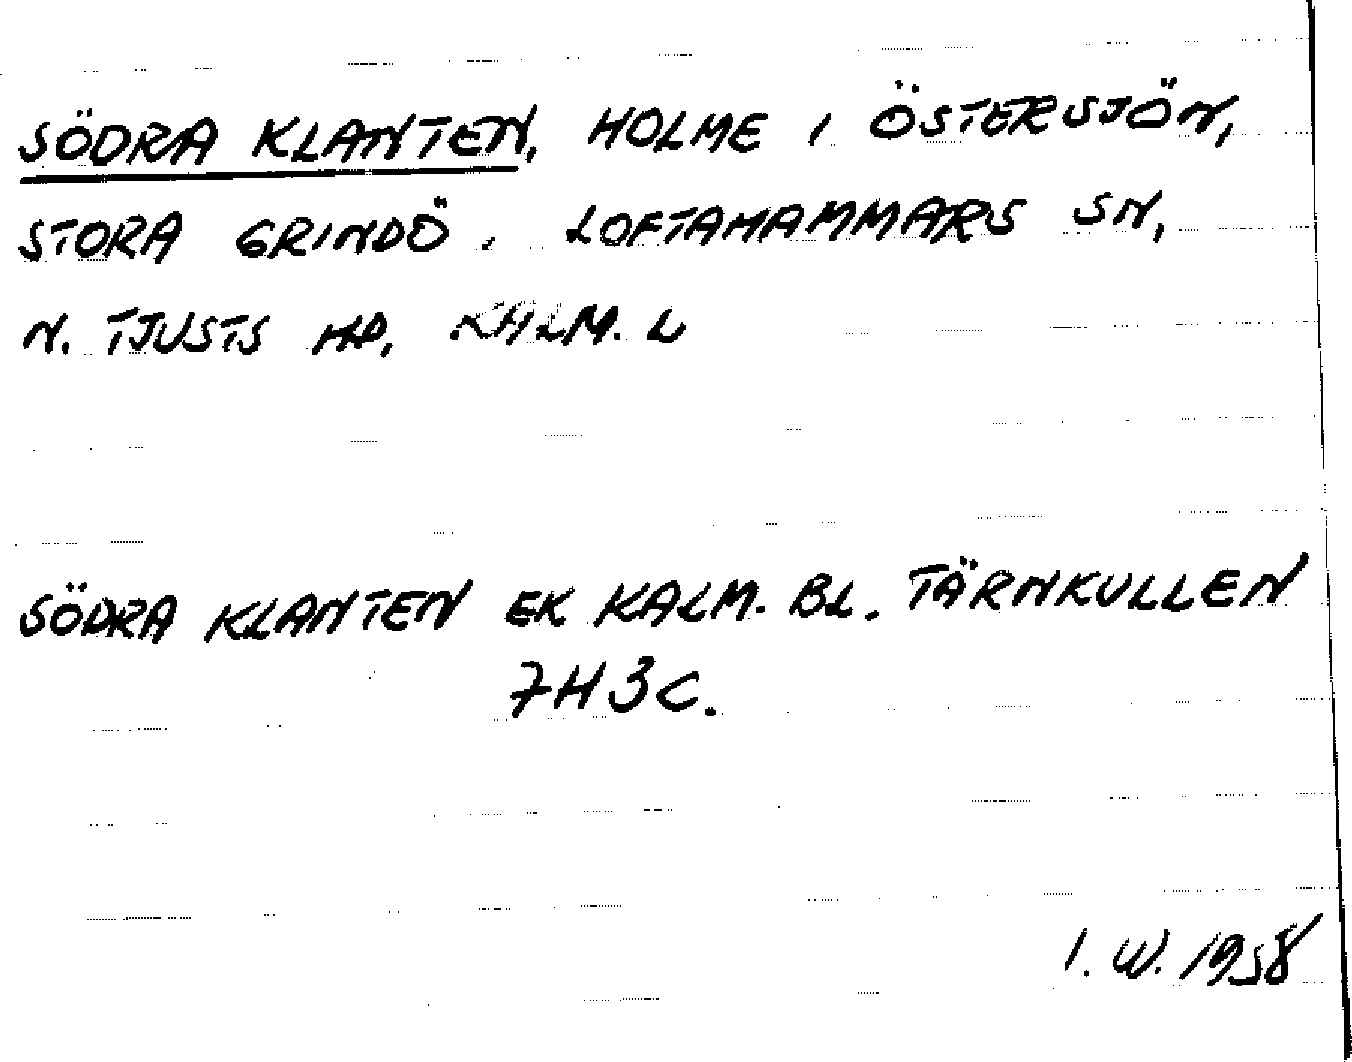 SÖDRA KLANTEN, HOLME I ÖSTERSJÖN,
STORA GRINDÖ, LOFTAHAMMARS SN,
N. TJUSTS HD, KALM. L
SÖDRA KLANTEN EK KALM. BL. TÄRNKULLEN
7H3C.
I. W. 1958